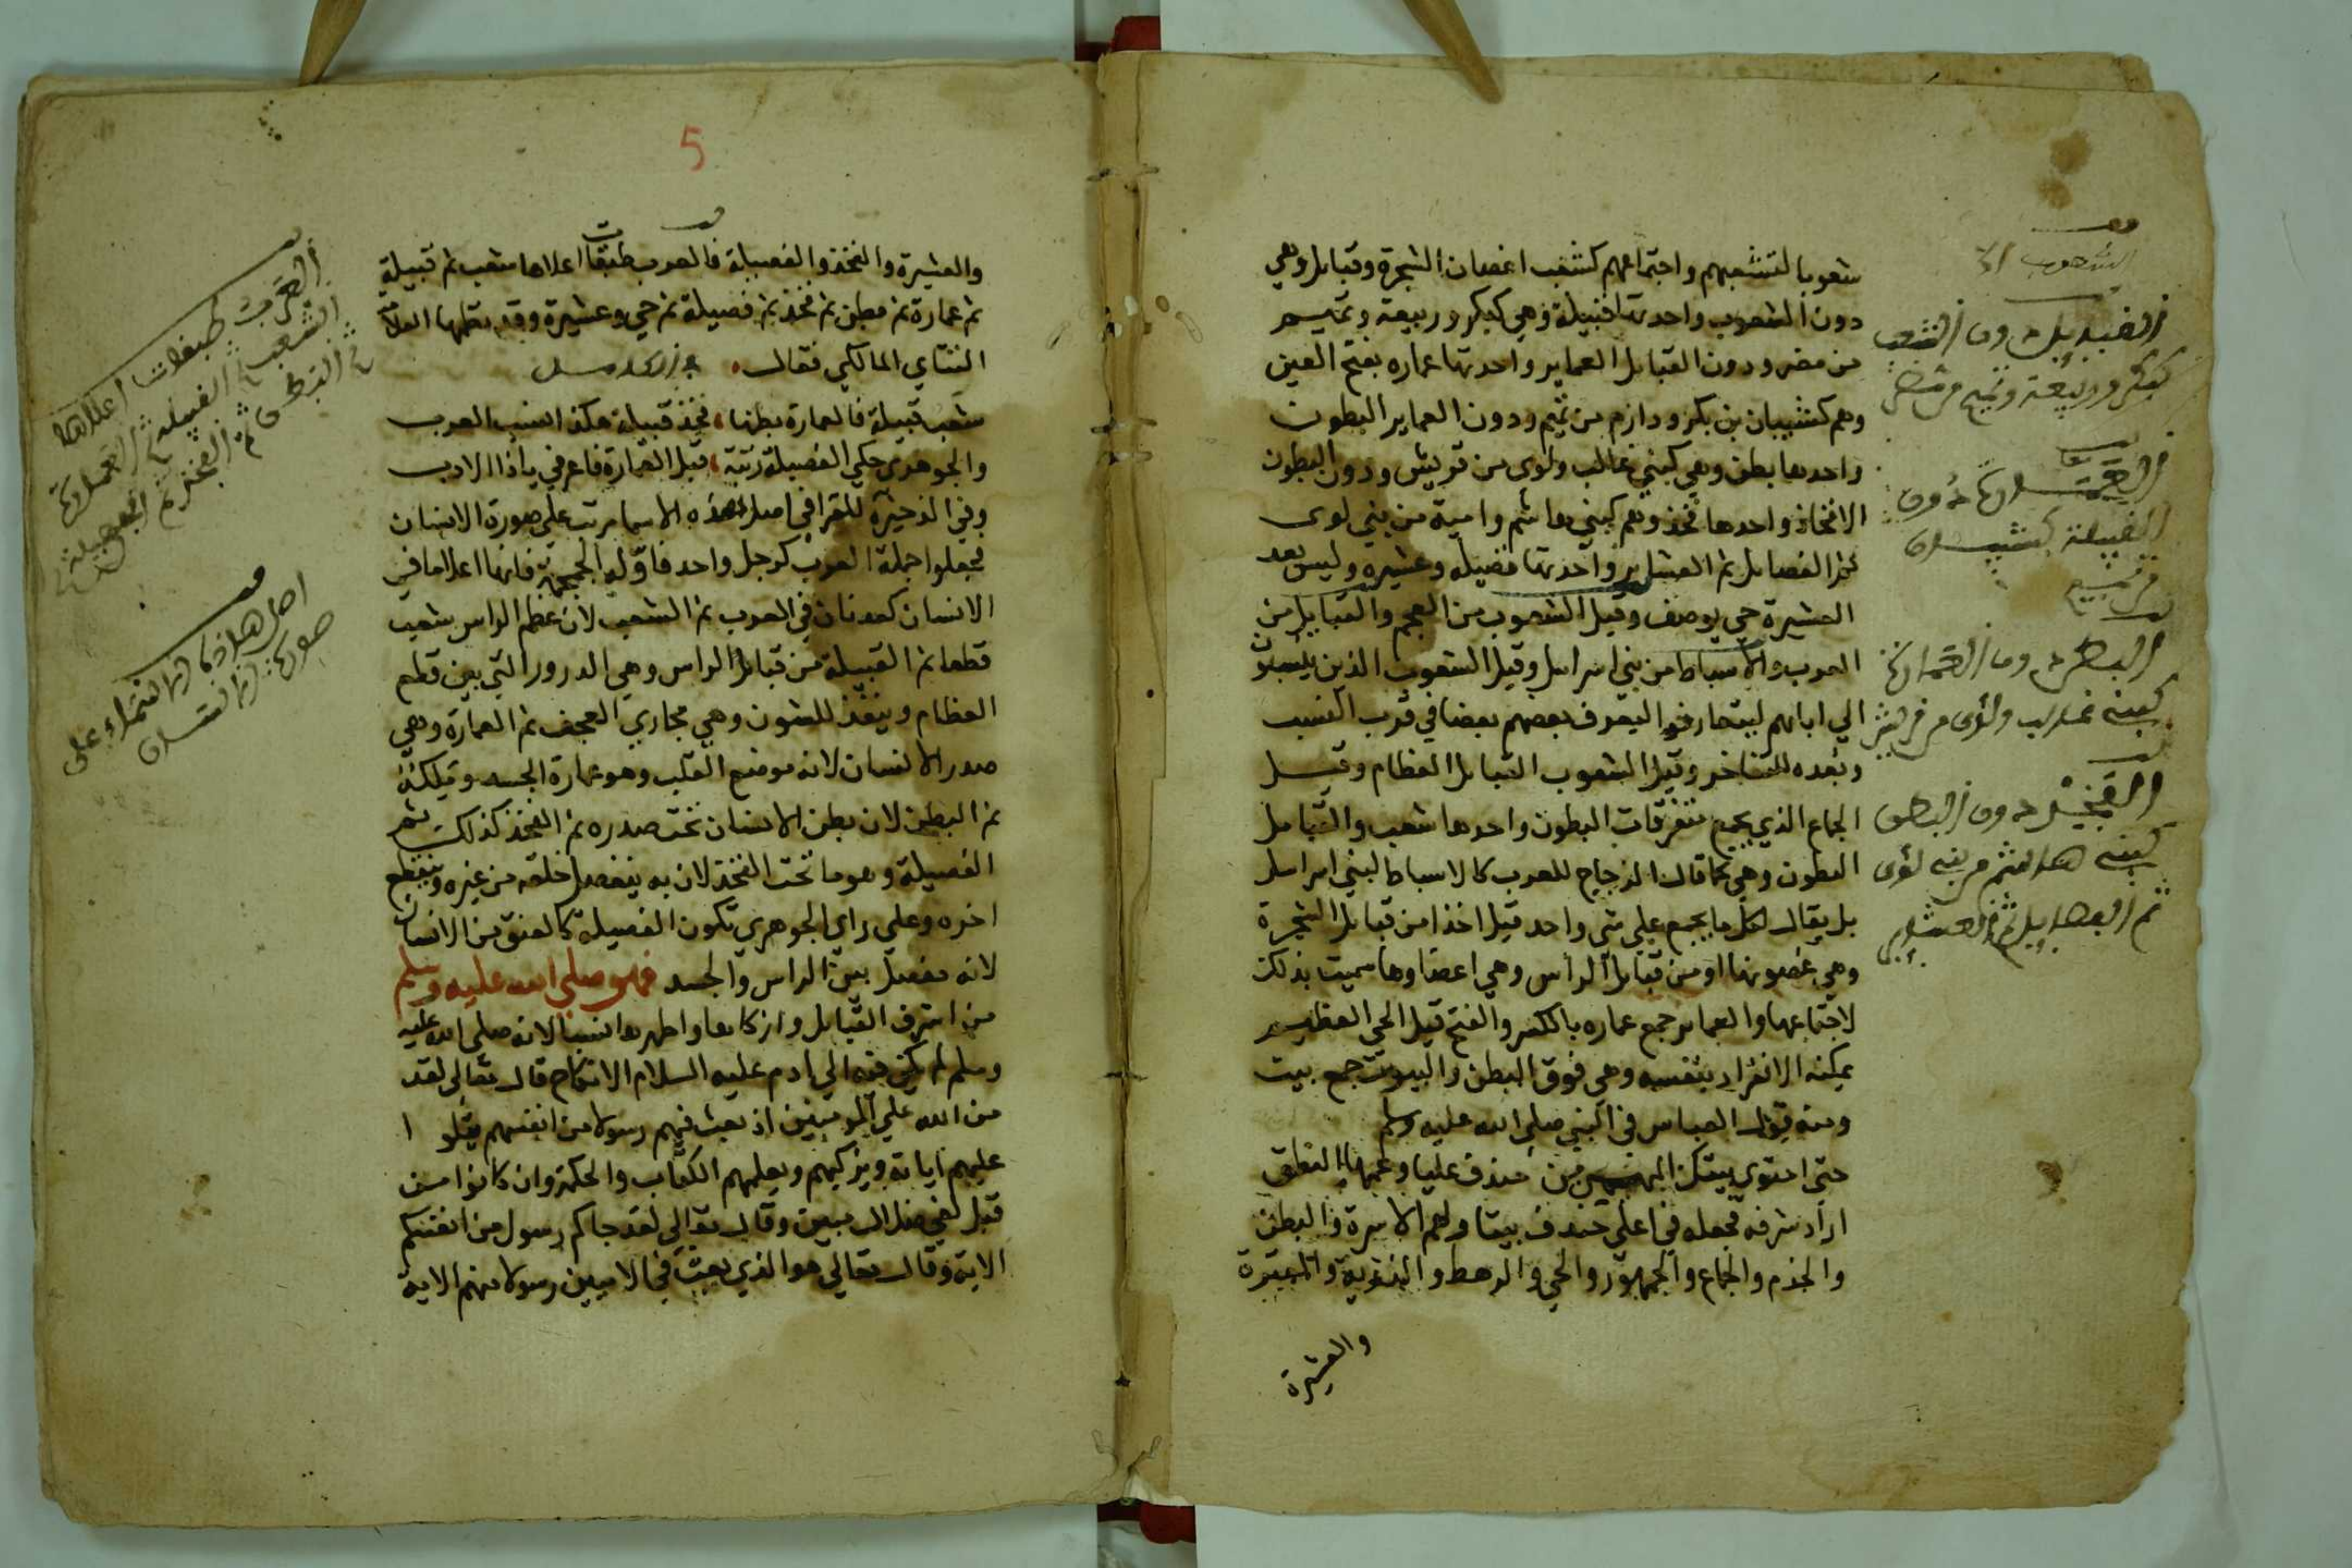 شعوبا لتشعبهم واجتماعهم كتشعب اغصان الشجرة وقبايل وهي
دون الشعوب واحدتها قبيلة وهي كبكر وربيعة وتميم
من مضر ودون القبايل العماير واحدتها عماره بفتح العين
وهم كشيبان بن بكر ودارم من تميم ودون العماير البطون
واحدها بطن وهي كبني غالب ولوى من قريش ودون البطون
الافخاذ واحدها فخذ وهم كبني هاشم وامية من بني لوى
ثم الفصايل ثم العشاير واحدتها فصيله وعشيره وليس بعد
العشيرة حي يوصف وقيل الشعوب من العجم والقبايل من
العرب والاسباط من بني اسرايل وقيل الشعوب الذين ينسبون
الي ابايهم ليتعارفوا ليعرف بعضهم بعضا في قرب النسب
وبعده للتفاخر وقيل الشعوب القبايل العظام وقيل
الجماع الذي يجمع متفرقات البطون واحدها شعب والقبايل
البطون وهي كما قال الزجاج للعرب كالاسباط لبني اسرايل
بل يقال لكل ما يجمع على شي واحد قبيل اخذا من قبايل الشجرة
وهي غصونها او من قبايل الراس وهي اعضاوها سميت بذلك
لاجتماعها والعماير جمع عماره بالكسر والفتح قيل الحي العظيم
يمكنه الانفراد بنفسه وهي فوق البطن والبيوت جمع بيت
ومنه قول العباس في النبي صلي الله عليه وسلم
حتى احتوى بيتك المهيمن من خندف عليا وتحتها النطق
اراد شرفه فجعله في اعلى خندف بيتا ولهم الاسرة والبطن
والجذم والجماع والجمهور والحي والرهط والذرية والعترة
والعشيرة
الشعوب
القبايل دون الشعب
كبكر وربيعة وتميم من مضر
العمارة دون
القبيلة كشيبان
من تميم
البطن دون العمارة
كبني غالب ولؤى من قريش
الفخذ دون البطن
كبني هاشم من بني لؤى
ثم الفصايل ثم العشاير
5
والعشيرة والفخذ والفصيلة فالعرب طبقات اعلاها شعب ثم قبيلة
ثم عمارة ثم بطن ثم فخذ ثم فصيلة ثم حي وعشيرة وقد نظمها العلامة
التتاي المالكي فقال
شعب قبيلة فالعمارة بطنها فخذ قبيلة هكذا نسب العرب
والجوهري حكى الفصيلة رتبة قبل العمارة فاعرفي ياذا الادب
وفي الذخيرة للقرافي اصل هذه الاسما مرتب على صورة الانسان
فجعلوا جملة العرب كرجل واحد فاوله الجمجمة فانها اعلا ما في
الانسان كعدنان في العرب ثم الشعب لان عظم الراس شعب
قطعا ثم القبيلة من قبايل الراس وهي الدرور التي بين قطع
العظام وينفذ للشون وهي مجاري العجف ثم العمارة وهي
صدر الانسان لانه موضع القلب وهو عمارة الجسد وتملكه
ثم البطن لان بطن الانسان تحت صدره ثم الفخذ كذلك ثم
الفصيلة وهو ما تحت الفخذ لان به ينفصل خلقه من غيره وينقطع
اخره وعلى راي الجوهري تكون الفصيلة كالعنق من الانسان
لانه مفصل بين الراس والجسد فهو صلى الله عليه وسلم
من اشرف القبايل وازكاها واطهرها نسبا لانه صلى الله عليه
وسلم لم يكن منه الي ادم عليه السلام الا نكاح قال تعالى لقد
من الله علي المومنين اذ بعث فيهم رسولا من انفسهم يتلوا
عليهم اياته ويزكيهم ويعلمهم الكتاب والحكمة وان كانوا من
قبل لفي ضلال مبين وقال تعالى لقد جاكم رسول من انفسكم
الاية وقال تعالى هو الذي بعث في الاميين رسولا منهم الاية
العرب طبقات اعلاها
الشعب ثم القبيله ثم العمارة
ثم البطن ثم الفخذ ثم الفصيلة
اصل هذه الاسماء على
صورة الانسان